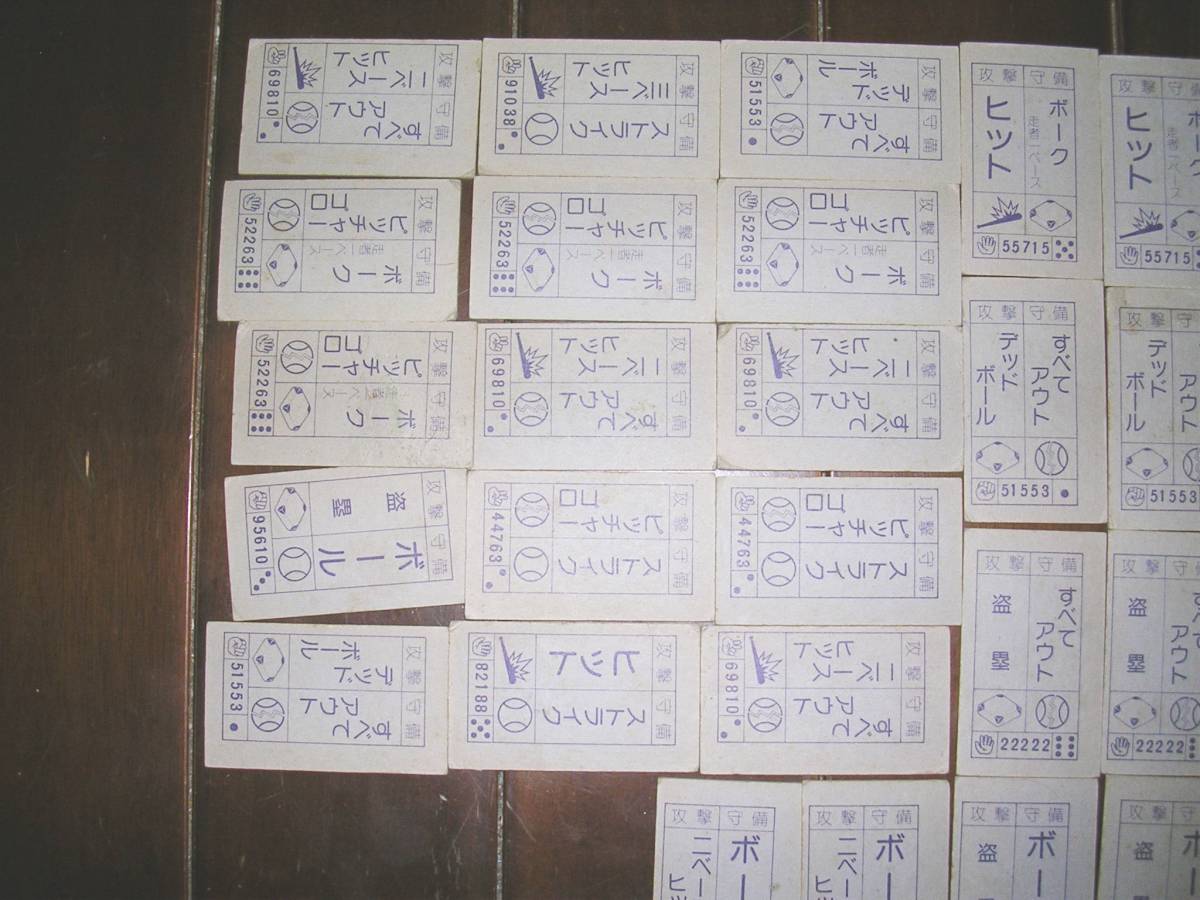 攻撃 守備
二ベース
ヒット
すべて
アウト
69810
攻撃 守備
三ベース
ヒット
ストライク
91038
攻撃 守備
デッド
ボール
すべて
アウト
51553
攻撃 守備
ヒット
ボーク
走者一ベース
55715
攻撃 守備
ヒット
ボーク
走者一ベース
55715
攻撃 守備
ピッチャー
ゴロ
ボーク
走者一ベース
52263
攻撃 守備
ピッチャー
ゴロ
ボーク
走者一ベース
52263
攻撃 守備
ピッチャー
ゴロ
ボーク
走者一ベース
52263
攻撃 守備
デッド
ボール
すべて
アウト
51553
攻撃 守
デッド
ボール
アウト
51553
攻撃 守備
ピッチャー
ゴロ
ボーク
走者一ベース
52263
攻撃 守備
二ベース
ヒット
すべて
アウト
69810
攻撃 守備
二ベース
ヒット
すべて
アウト
69810
攻撃 守備
盗塁
ボール
95610
攻撃 守備
ピッチャー
ゴロ
ストライク
44763
攻撃 守備
ピッチャー
ゴロ
ストライク
44763
攻撃 守備
盗塁
すべて
アウト
22222
攻撃 守備
盗塁
すべて
アウト
22222
攻撃 守備
デッド
ボール
すべて
アウト
51553
攻撃 守備
ヒット
ストライク
82188
攻撃 守備
二ベース
ヒット
すべて
アウト
69810
攻撃 守備
二ベー
ヒ
ボー
攻撃 守備
二ベー
ヒ
ボー
攻撃 守備
盗
ボー
攻撃 守備
盗
ボー